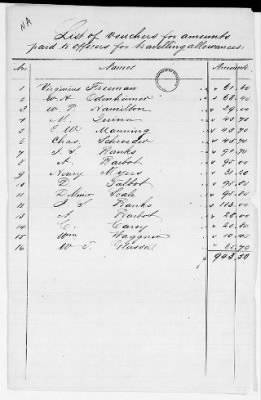 NA
List of vouchers for amounts
paid to officers for travelling allowances.
Nos Names Amounts
1 Virginius Freeman " 61.60
2 W. A. Odenheimer " 60.40
3 W. P. Hamilton " 29.00
4 M. Quinn " 43.70
5 E W. Manning " 43.70
6 Chas. Schroeder " 43.70
7 J. S. Banks " 91.70
8 A. Barbot " 95.00
9 Henry Myers " 31.20
10 D. Talbot " 91.20
11 D Minor Scale " 91.20
12 J S Banks " 113.00
13 A Barbot " 20.00
14 C. Carey " 20.20
15 Wm Waggoner " 10.40
16 W. T. " 65.70
943.50